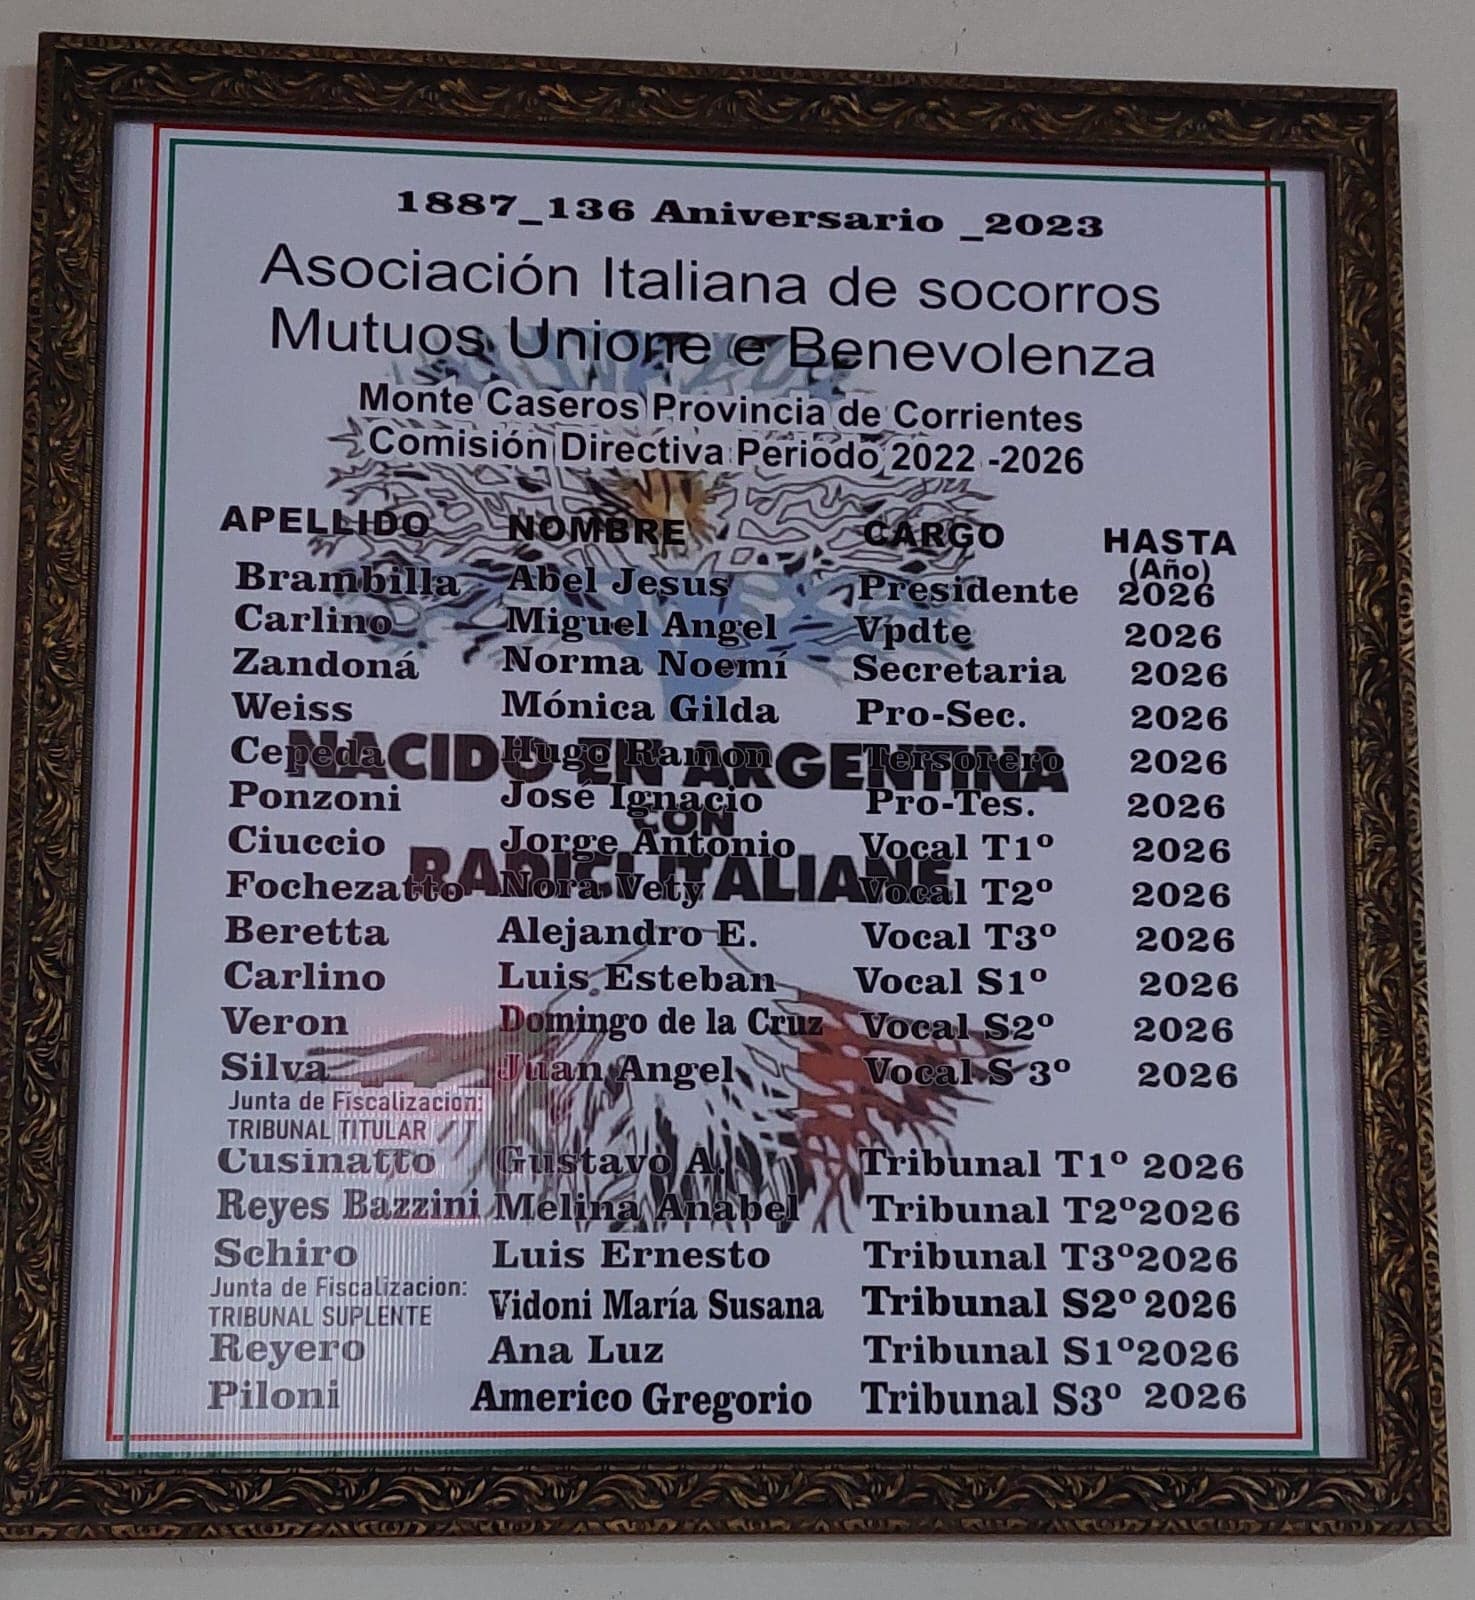 1887_136 Aniversario _2023
Asociación Italiana de socorros
Mutuos Unione e Benevolenza
Monte Caseros Provincia de Corrientes
Comisión Directiva Periodo 2022 -2026
APELLIDO NOMBRE CARGO HASTA
(Año)
Brambilla Abel Jesus Presidente 2026
Carlino Miguel Angel Vpdte 2026
Zandoná Norma Noemí Secretaria 2026
Weiss Mónica Gilda Pro-Sec. 2026
Cepeda Hugo Ramon Tersorero 2026
NACIDO EN ARGENTINA
Ponzoni José Ignacio Pro-Tes. 2026
CON
Ciuccio Jorge Antonio Vocal T1º 2026
RADICI ITALIANE
Fochezatto Nora Vety Vocal T2º 2026
Beretta Alejandro E. Vocal T3º 2026
Carlino Luis Esteban Vocal S1º 2026
Veron Domingo de la Cruz Vocal S2º 2026
Silva Juan Angel Vocal S 3º 2026
Junta de Fiscalizacion:
TRIBUNAL TITULAR
Cusinatto Gustavo A. Tribunal T1º 2026
Reyes Bazzini Melina Anabel Tribunal T2º2026
Schiro Luis Ernesto Tribunal T3º2026
Junta de Fiscalizacion:
TRIBUNAL SUPLENTE
Vidoni María Susana Tribunal S2º 2026
Reyero Ana Luz Tribunal S1º2026
Piloni Americo Gregorio Tribunal S3º 2026